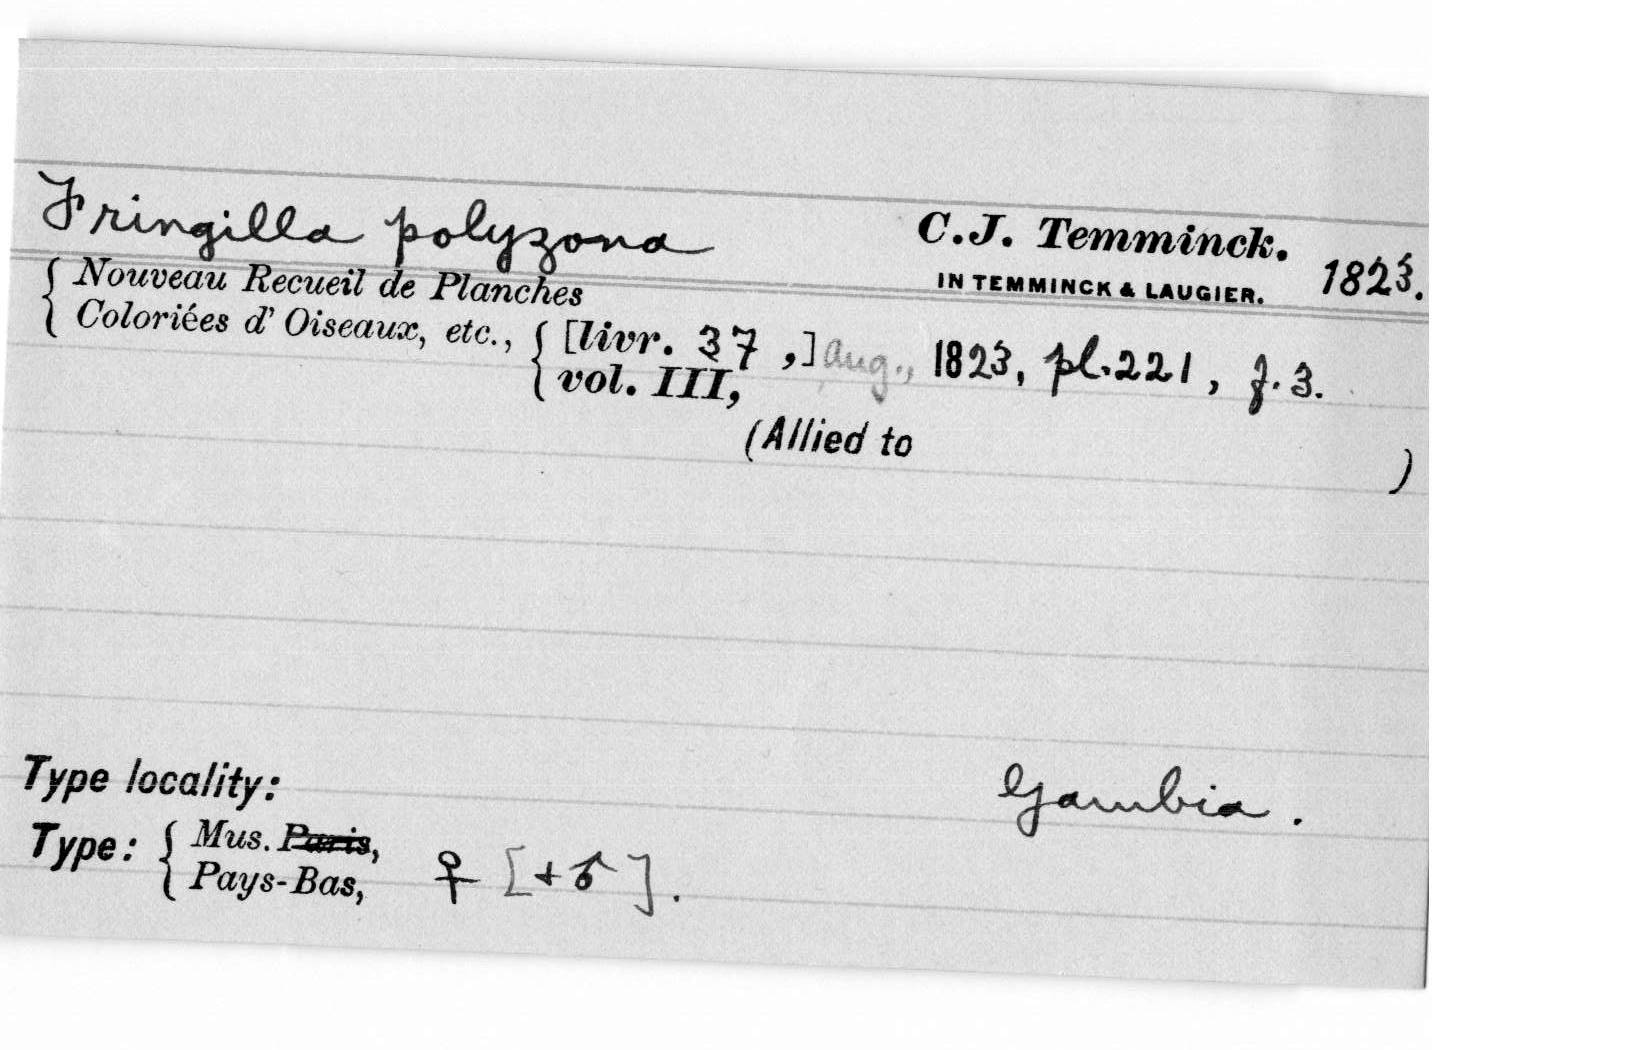 Fringilla polyzona C.J. Temminck.
IN TEMMINCK & LAUGIER. 1823.
{ Nouveau Recueil de Planches
Coloriées d' Oiseaux, etc., { [livr. 37 ,] aug., 1823, pl. 221, f. 3.
vol. III,
(Allied to )
Type locality: Gambia.
Type: { Mus. Paris,
Pays-Bas, ♀ [+♂].